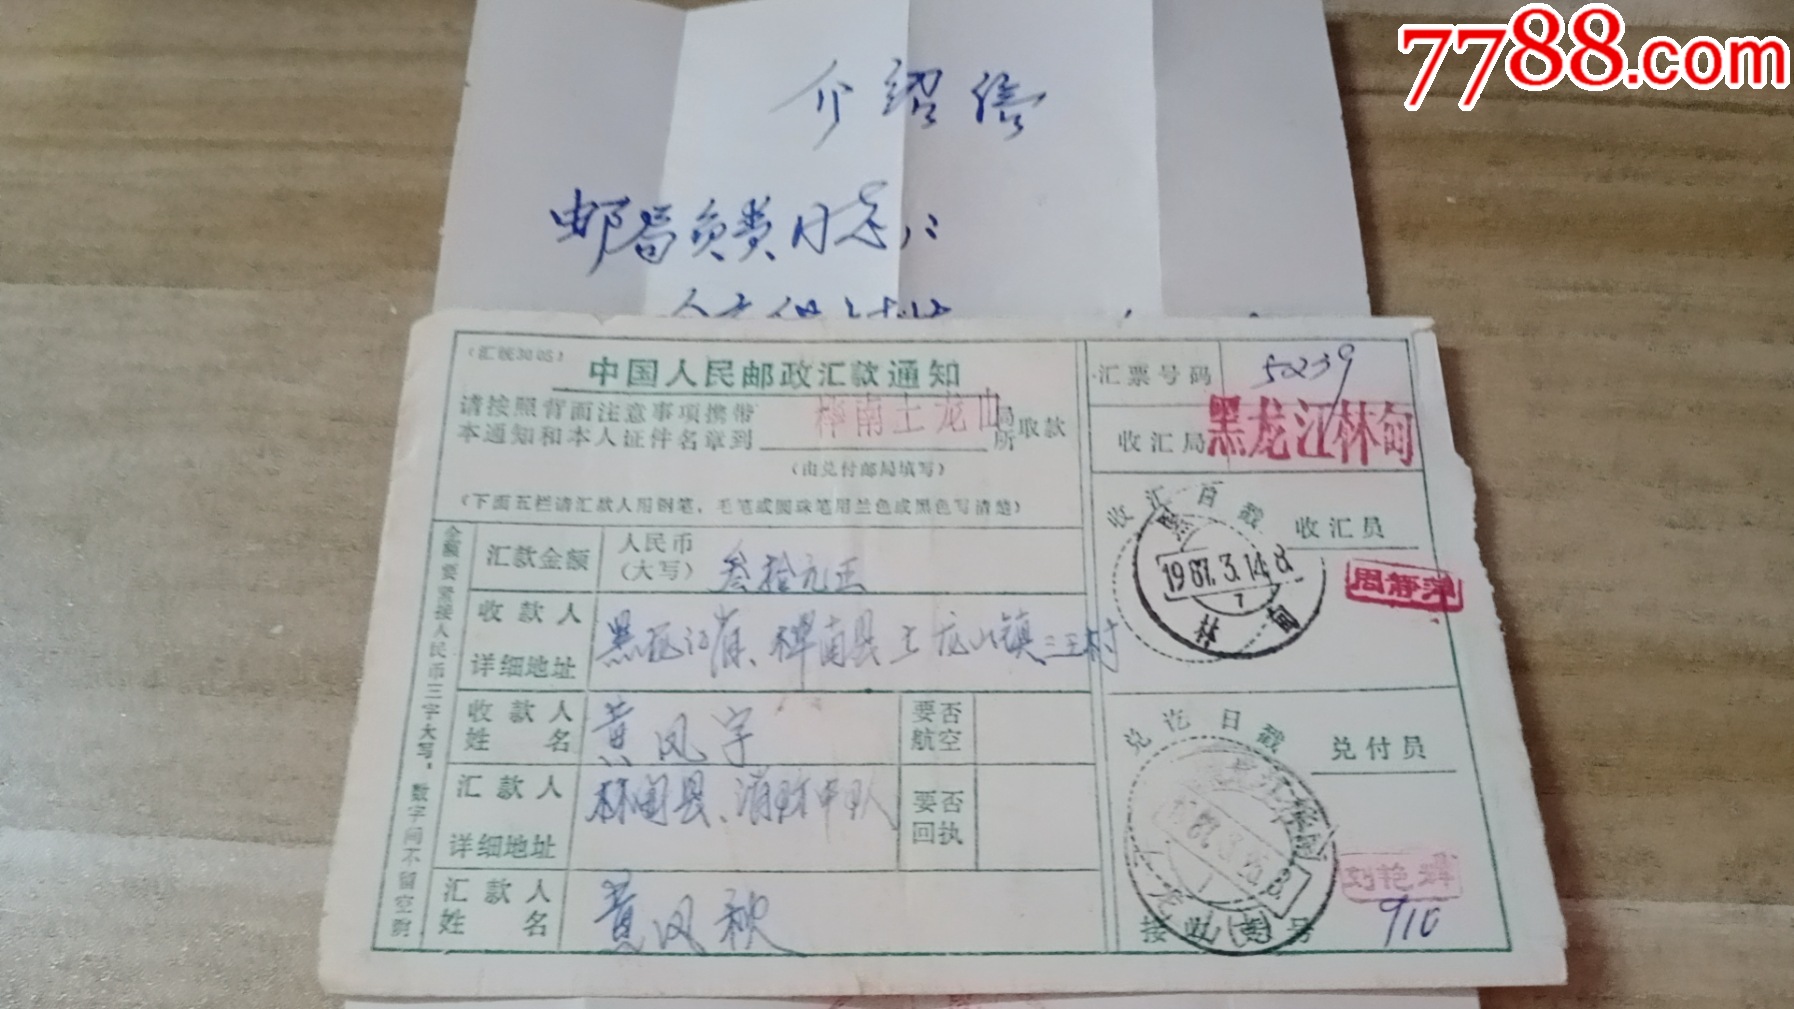 7788.com
介绍信
邮局负责同志：
（汇统3005）
中国人民邮政汇款通知
请按照背面注意事项携带
本通知和本人证件名章到 桦南土龙山 局所取款
（由兑付邮局填写）
（下面五栏请汇款人用钢笔，毛笔或圆珠笔用兰色或黑色写清楚）
金额要紧接人民币三字大写，数字间不留空隙
汇款金额 人民币（大写） 叁拾元正
收款人详细地址 黑龙江省、桦南县土龙山镇三王村
收款人姓名 黄凤宇 要否航空
汇款人详细地址 林甸县、消防中队 要否回执
汇款人姓名 黄凤秋
汇票号码 50239
收汇局 黑龙江林甸
收汇日戳 收汇员
黑
1987.3.14.8
1
林甸
周静萍
兑讫日戳 兑付员
刘艳辉
接收 号 910